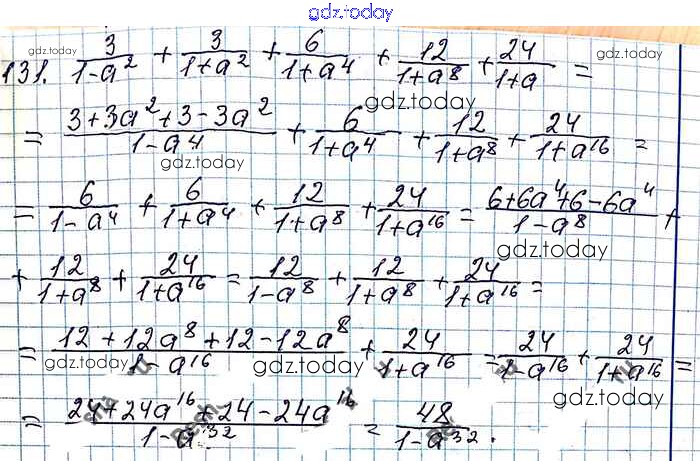 gdz.today
131. 3/(1-a²) + 3/(1+a²) + 6/(1+a⁴) + 12/(1+a⁸) + 24/(1+a) =
gdz.today gdz.today gdz.today
= (3+3a²+3-3a²)/(1-a⁴) + 6/(1+a⁴) + 12/(1+a⁸) + 24/(1+a¹⁶) =
gdz.today gdz.today
= 6/(1-a⁴) + 6/(1+a⁴) + 12/(1+a⁸) + 24/(1+a¹⁶) = (6+6a⁴+6-6a⁴)/(1-a⁸) +
gdz.today gdz.today
+ 12/(1+a⁸) + 24/(1+a¹⁶) = 12/(1-a⁸) + 12/(1+a⁸) + 24/(1+a¹⁶) =
gdz.today gdz.today
= (12+12a⁸+12-12a⁸)/(1-a¹⁶) + 24/(1+a¹⁶) = 24/(1-a¹⁶) + 24/(1+a¹⁶) =
gdz.today gdz.today gdz.today
= (24+24a¹⁶+24-24a¹⁶)/(1-a³²) = 48/(1-a³²).